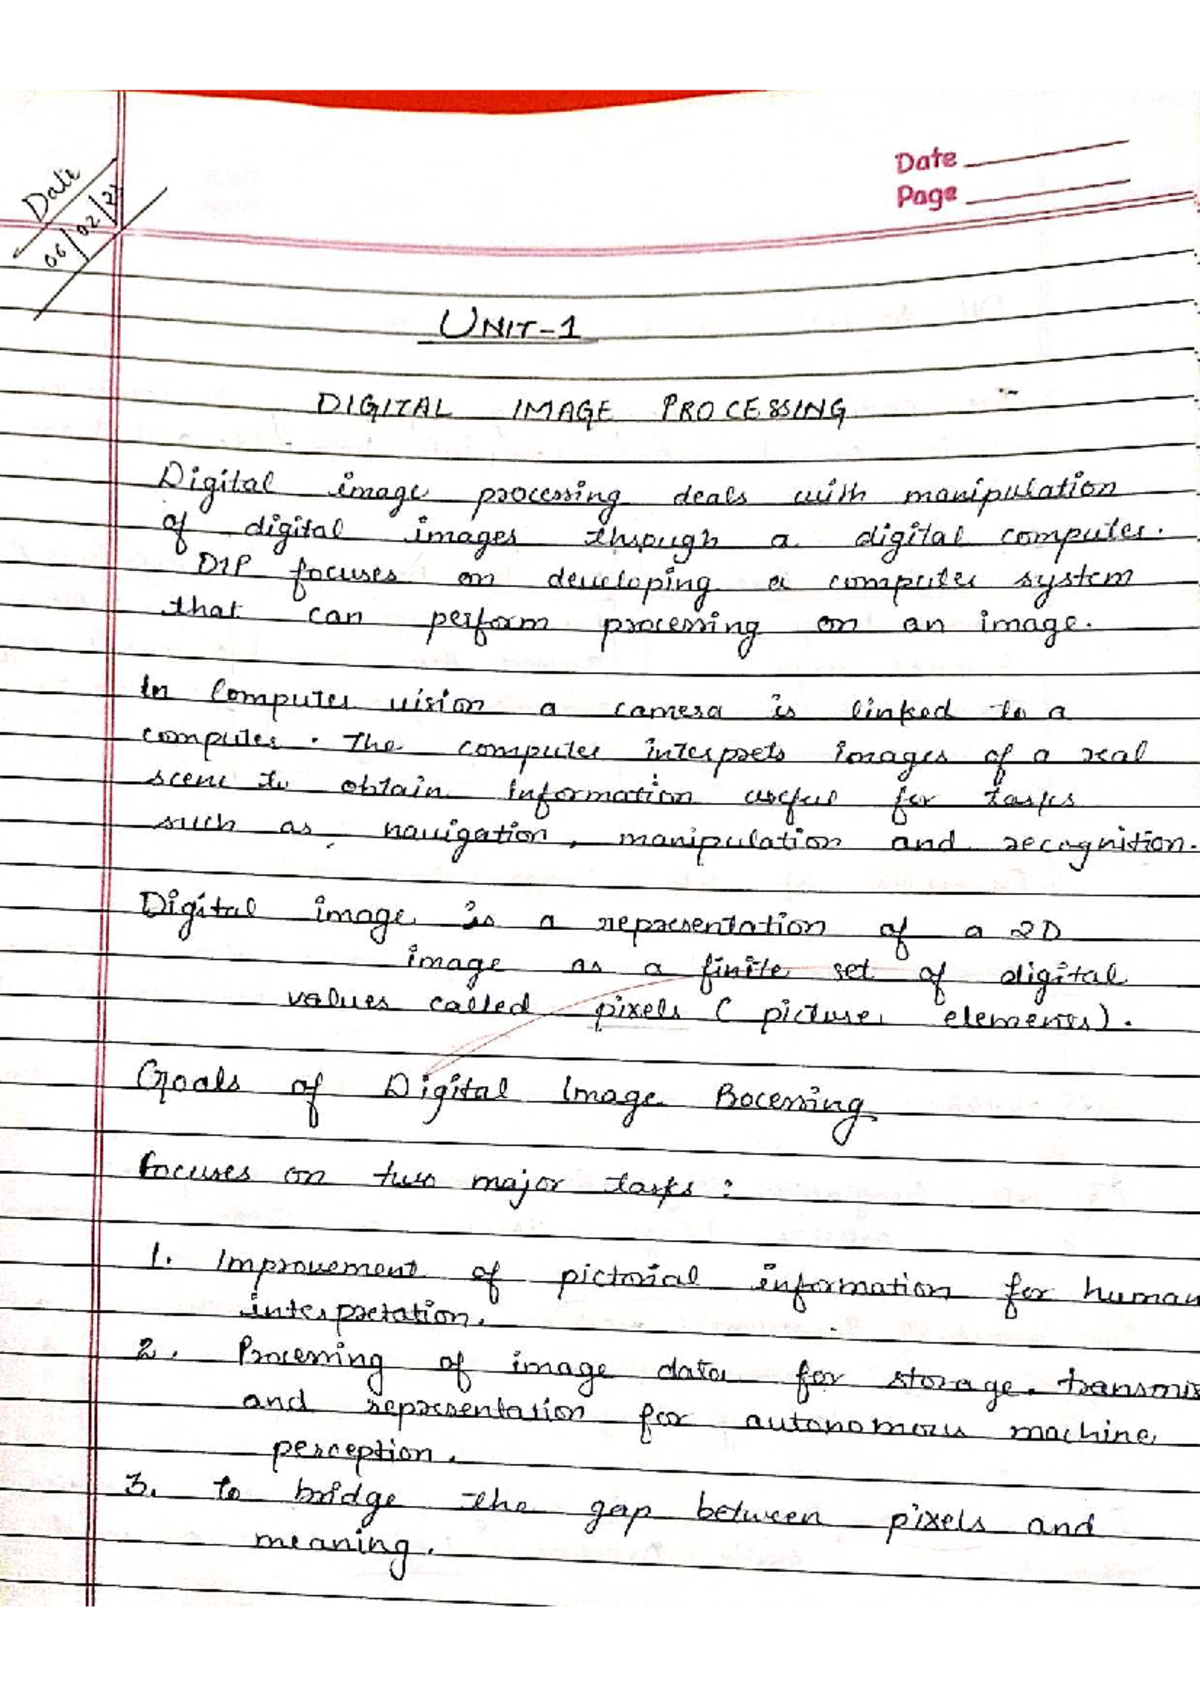 Date
Page
Date
06/02/23
UNIT-1
DIGITAL IMAGE PROCESSING
Digital image processing deals with manipulation
of digital images through a digital computer.
DIP focuses on developing a computer system
that can perform processing on an image.
In Computer vision a camera is linked to a
computer. The computer interprets images of a real
scene to obtain information useful for tasks
such as, navigation, manipulation and recognition.
Digital image is a representation of a 2D
image as a finite set of digital
values called pixels (picture elements).
Goals of Digital Image Processing
Focuses on two major tasks:
1. Improvement of pictorial information for human
interpretation.
2. Processing of image data for storage, transmis
and representation for autonomous machine
perception.
3. to bridge the gap between pixels and
meaning.